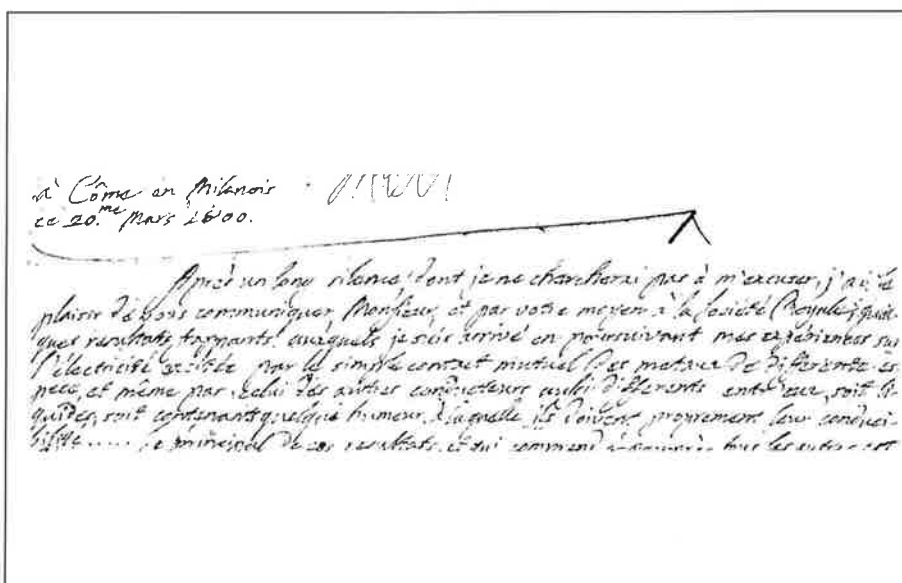 à Côme en Milanois
ce 20.me Mars 1800.
Après un long silence, dont je ne chercherai pas à m'excuser, j'ai le
plaisir de vous communiquer, Monsieur, et par votre moyen à la Société Royale, quel-
ques resultats frappants auxquels je suis arrivé en poursuivant mes expériences sur
l'électricité excitée par le simple contact mutuel des metaux de differente es-
pece, et même par celui des autres conducteurs, aussi differents entr'eux, soit li-
quides, soit contenant quelque humeur, à laquelle ils doivent proprement leur conduci-
bilité..... Le principal de ces resultats, et qui comprend tous les autres est